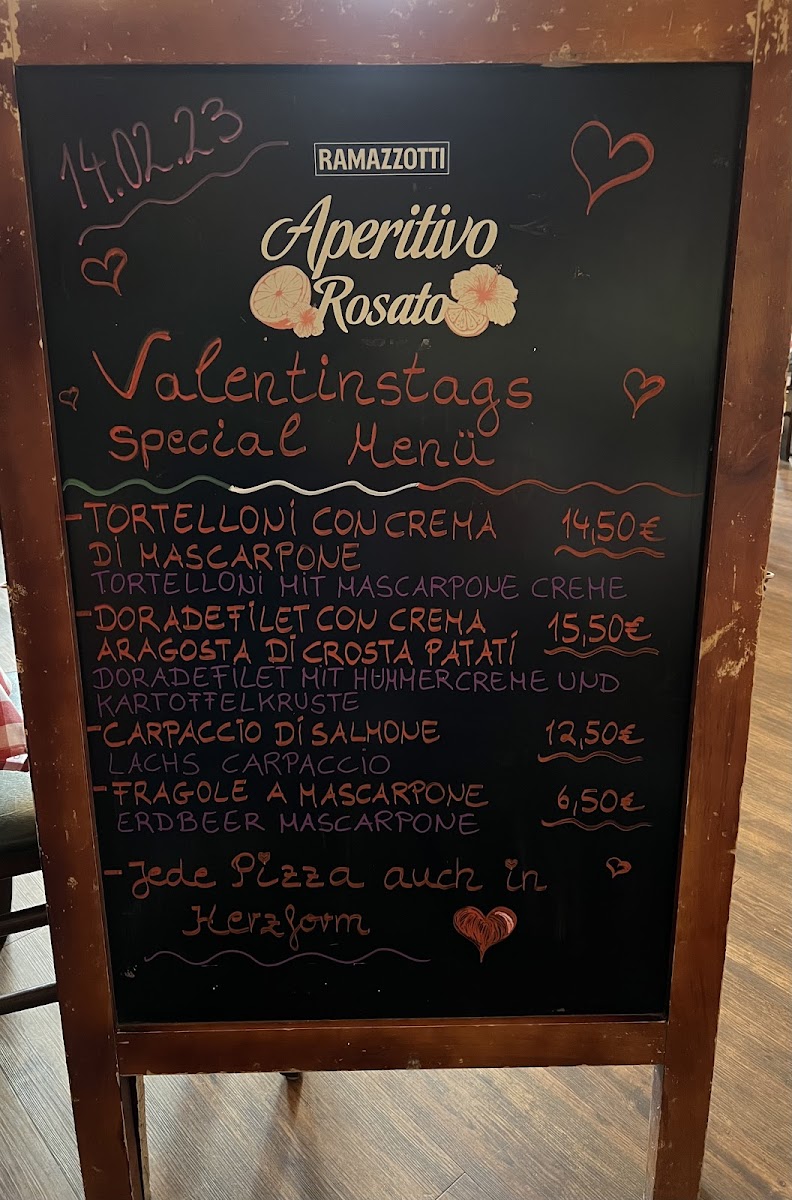 14.02.23
RAMAZZOTTI
Aperitivo
Rosato
Valentinstags
Special Menü
-TORTELLONI CON CREMA 14,50€
DI MASCARPONE
TORTELLONI MIT MASCARPONE CREME
-DORADEFILET CON CREMA 15,50€
ARAGOSTA DI CROSTA PATATI
DORADEFILET MIT HUMMERCREME UND
KARTOFFELKRUSTE
-CARPACCIO DI SALMONE 12,50€
LACHS CARPACCIO
-FRAGOLE A MASCARPONE 6,50€
ERDBEER MASCARPONE
-Jede Pizza auch in
Herzform